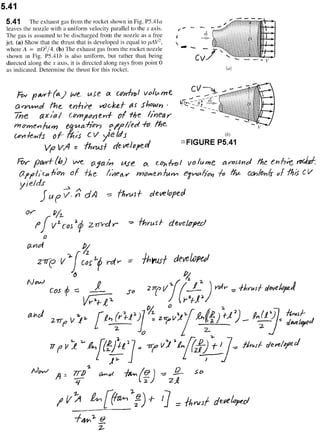 5.41
5.41 The exhaust gas from the rocket shown in Fig. P5.41a
leaves the nozzle with a uniform velocity parallel to the x axis.
The gas is assumed to be discharged from the nozzle as a free
jet. (a) Show that the thrust that is developed is equal to ρAV²,
where A = πD²/4. (b) The exhaust gas from the rocket nozzle
shown in Fig. P5.41b is also uniform, but rather than being
directed along the x axis, it is directed along rays from point 0
as indicated. Determine the thrust for this rocket.
CV
(a)
CV
(b)
FIGURE P5.41
For part (a) we use a control volume
around the entire rocket as shown.
The axial component of the linear
momentum equation applied to the
contents of this CV yields
VρVA = thrust developed
For part (b) we again use a control volume around the entire rocket.
Application of the linear momentum equation to the contents of this CV
yields
∫uρV⃗·n̂ dA = thrust developed
or
ρ∫₀^{D/2} V²cos²φ 2πrdr = thrust developed
and
2πρV²∫₀^{D/2} cos²φ rdr = thrust developed
Now
cos φ = ℓ/√(r²+ℓ²) so 2πρV²∫₀^{D/2} (ℓ²/(r²+ℓ²)) rdr = thrust developed
and
2πρV²ℓ² [ln(r²+ℓ²)/2]₀^{D/2} = 2πρV²ℓ² [ln((D/2)²+ℓ²)/2 − ln(ℓ²)/2] = thrust developed
πρV²ℓ² ln[((D/2)²+ℓ²)/ℓ²] = πρV²ℓ² ln[(D/2ℓ)²+1] = thrust developed
Now
A = πD²/4 and tan(θ/2) = D/2ℓ so
ρV²A ln[(tan² θ/2) + 1] / tan² θ/2 = thrust developed